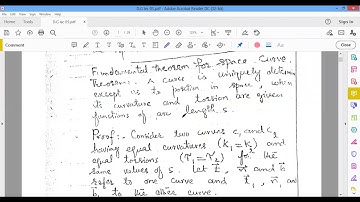 D.G lec 05.pdf - Adobe Acrobat Reader DC (32-bit)
Comment
Fundamental theorem for space curve.
Theorem:- A curve is uniquely determin
except as to position in space, when
its curvature and torsion are given
functions of arc length s.
Proof:- Consider two curves c, and c₂
having equal curvatures (k₁=k₂) and
equal torsions (τ₁=τ₂) for the
same values of s. Let t⃗, n⃗ and b⃗
refer to one curve and t₁, n, an
b, to the other curve.